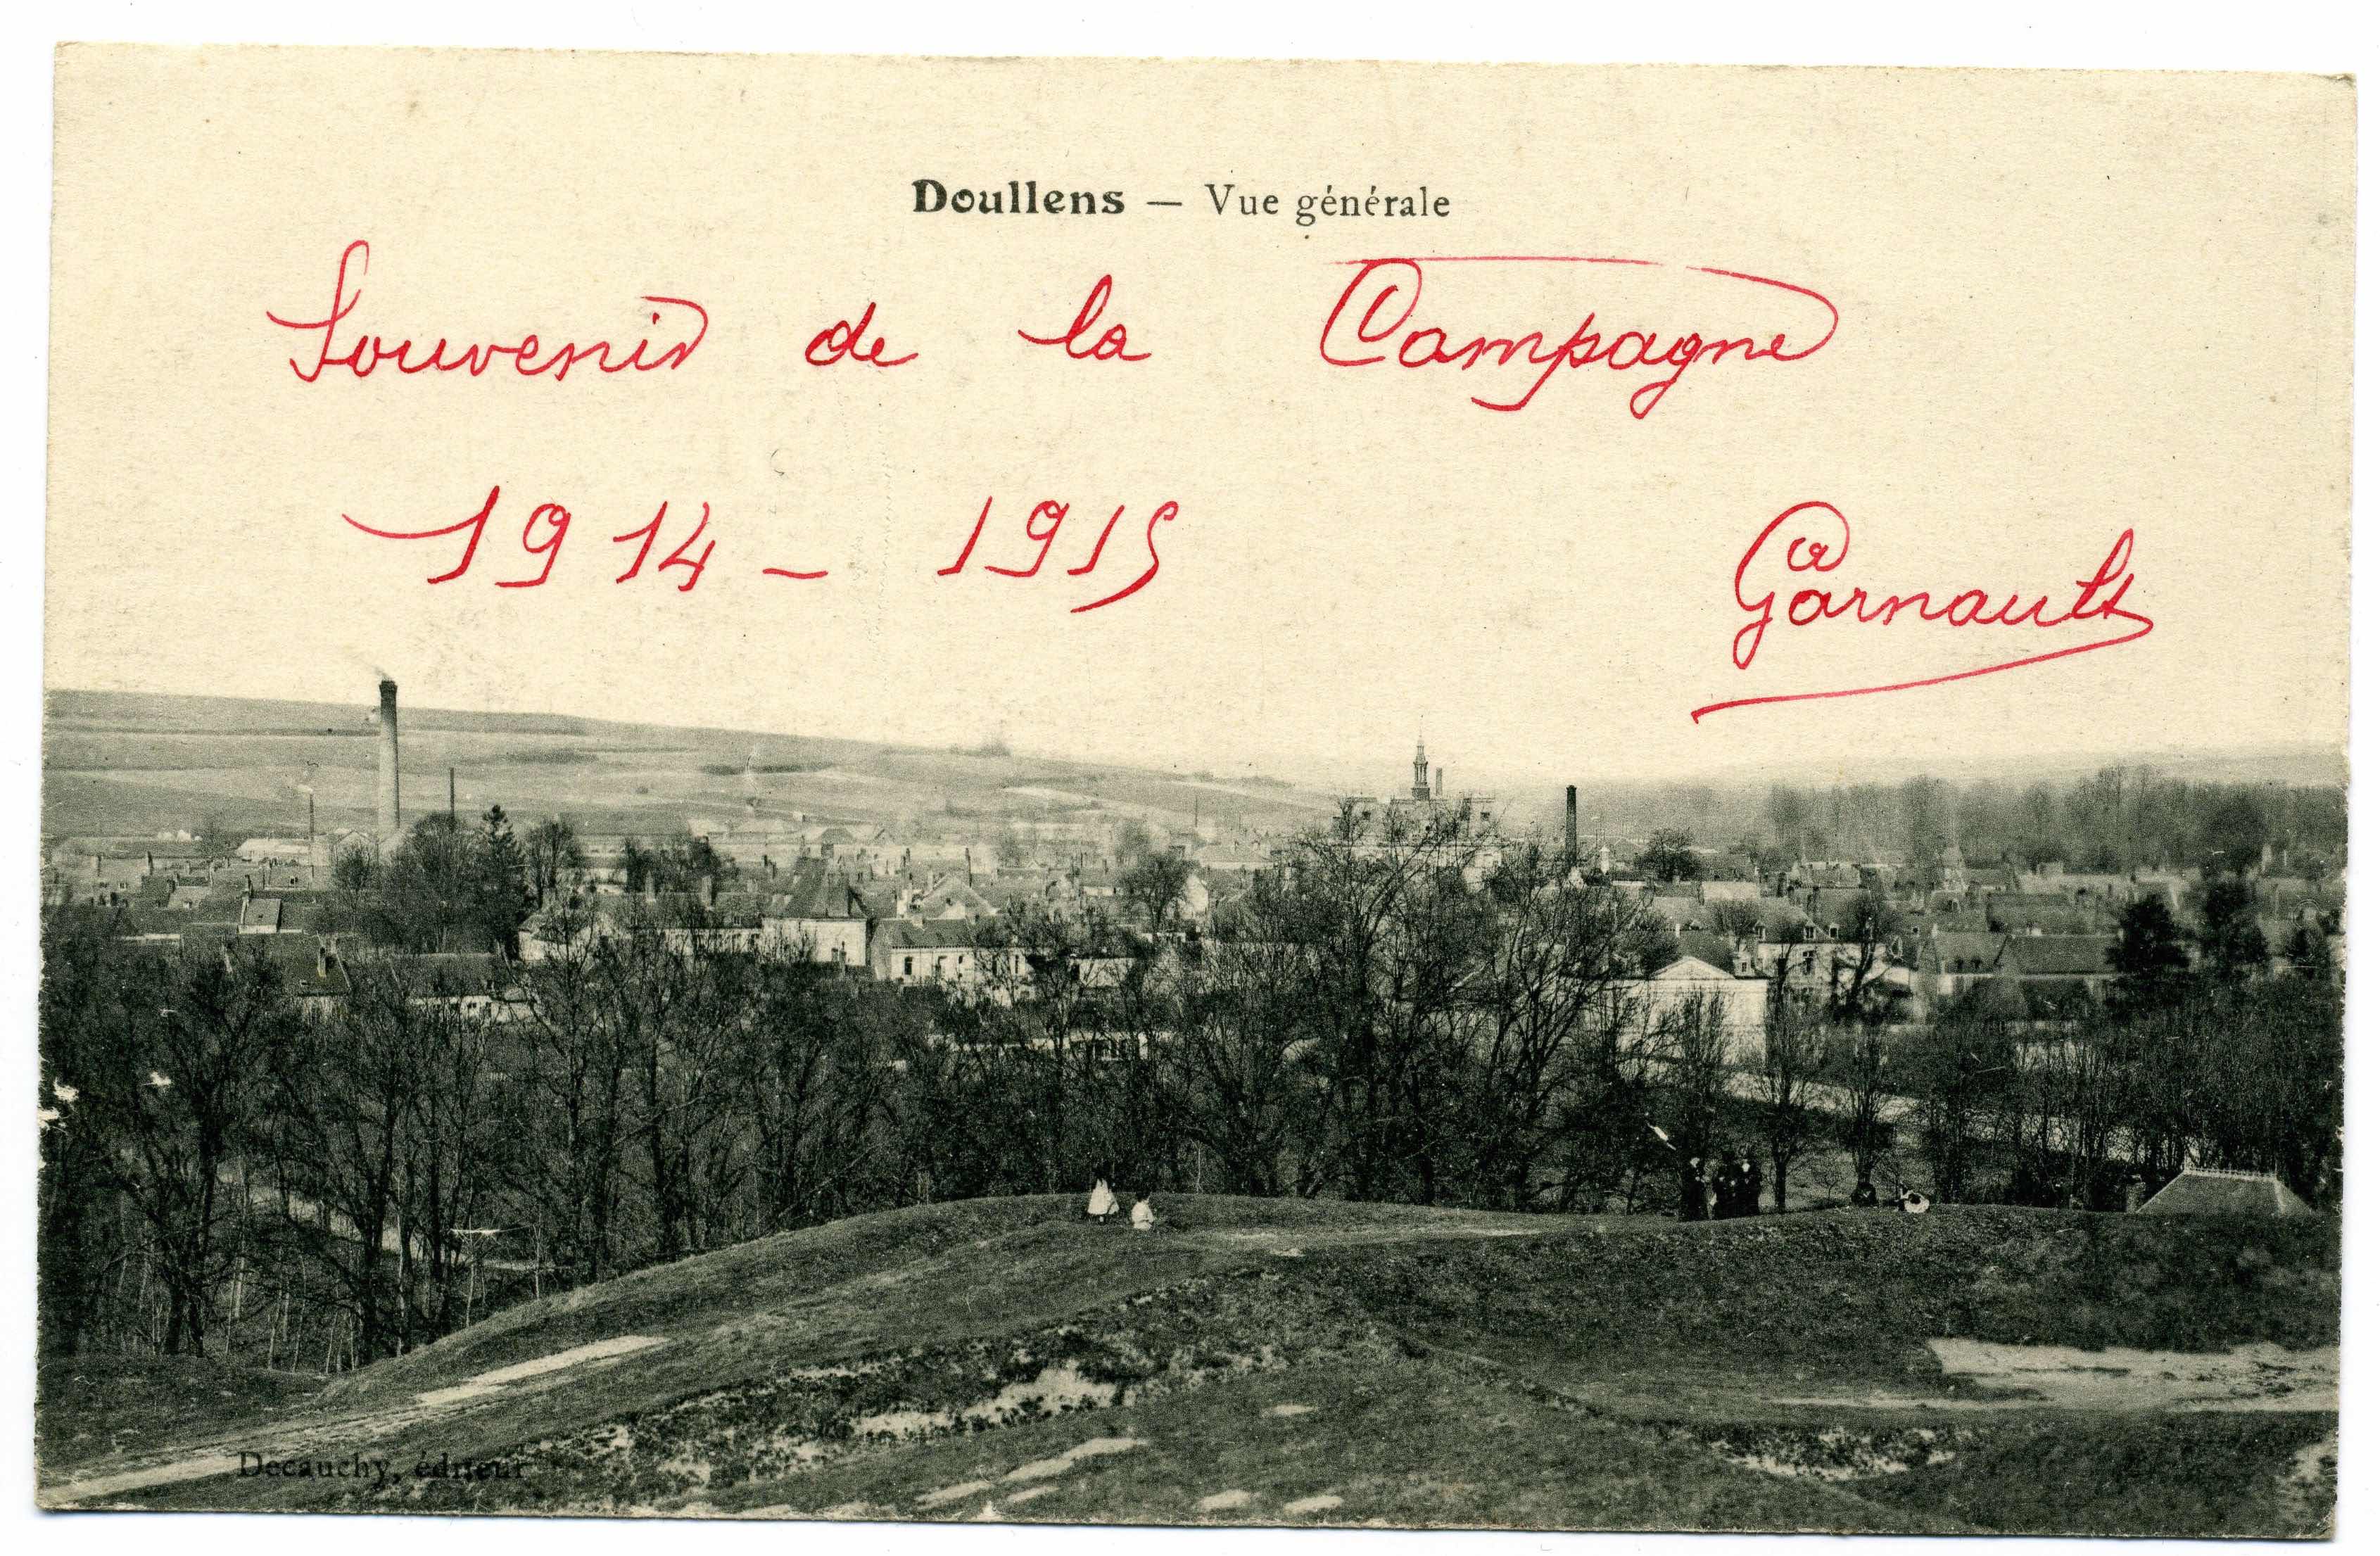 Doullens — Vue générale
Souvenir de la Campagne
1914 - 1915
Garnault
Decauchy, éditeur